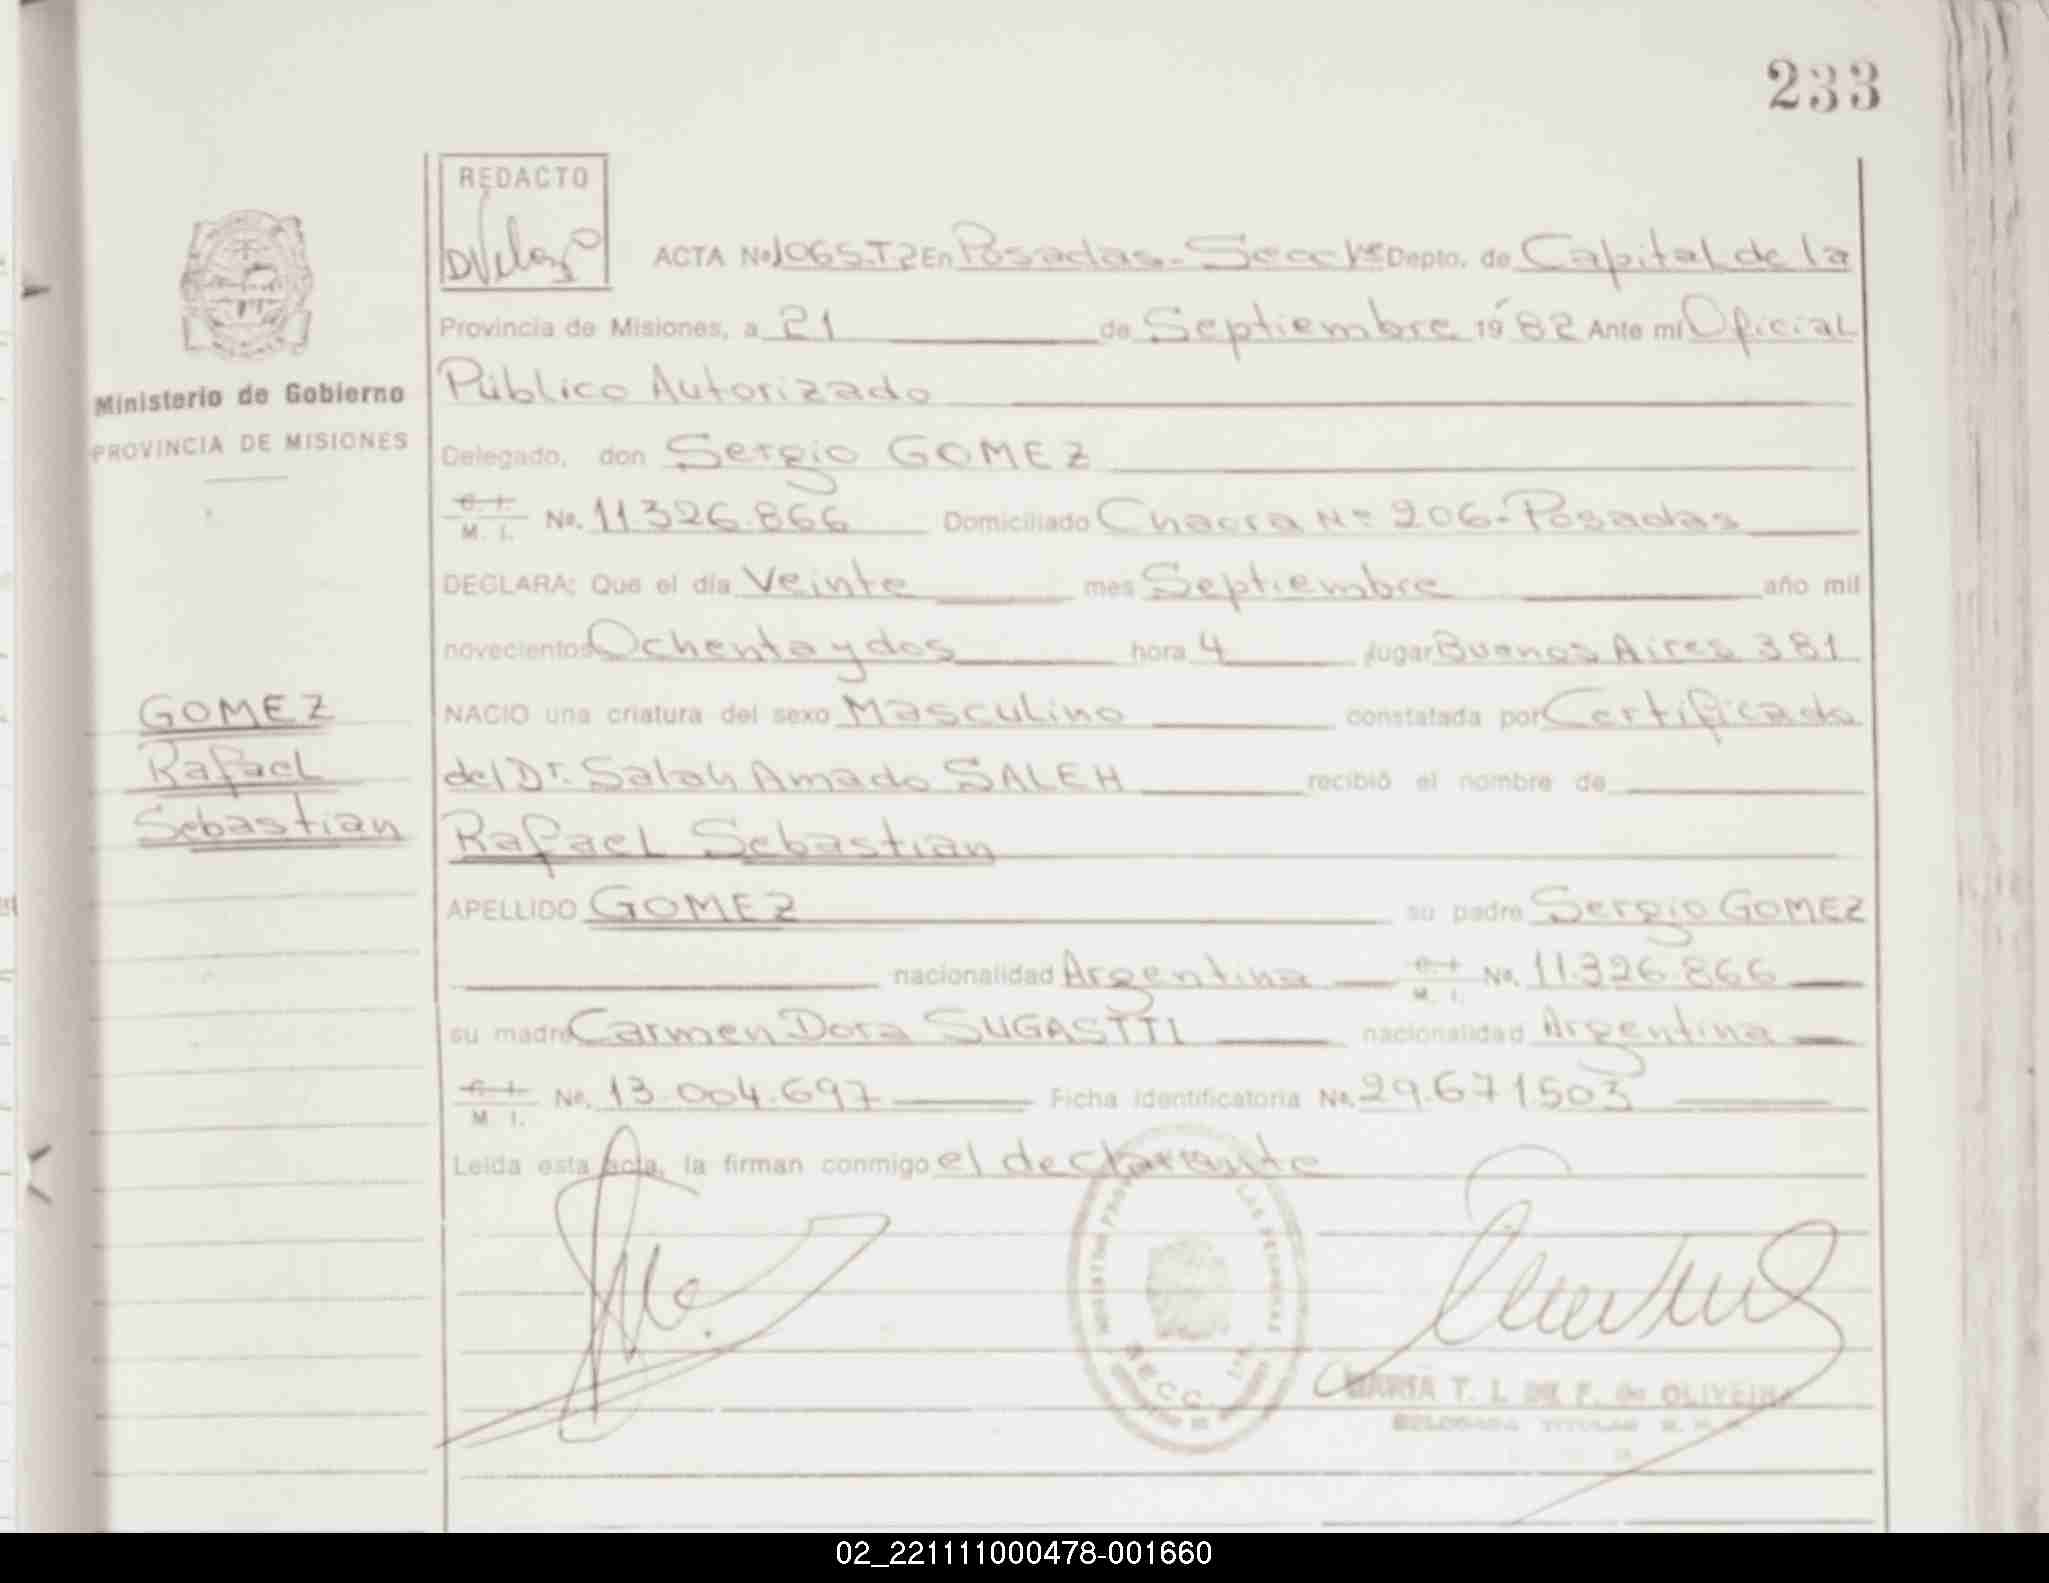 233
REDACTO
ACTA No 1065-T2 En Posadas - Secc 1ra Depto. de Capital de la
Provincia de Misiones, a 21 de Septiembre 19 82 Ante mí Oficial
Ministerio de Gobierno
PROVINCIA DE MISIONES
Público Autorizado
Delegado, don Sergio GOMEZ
C. I.
M. I. No. 11.326.866 Domiciliado Chacra Nº 206-Posadas
DECLARA: Que el día Veinte mes Septiembre año mil
novecientos Ochenta y dos hora 4 lugar Buenos Aires 381
GOMEZ
Rafael
Sebastian
NACIO una criatura del sexo Masculino constatada por Certificado
del Dr. Salah Amado SALEH recibió el nombre de
Rafael Sebastian
APELLIDO GOMEZ su padre Sergio GOMEZ
nacionalidad Argentina C. I. M. I. No. 11.326.866
su madre Carmen Dora SUGASTTI nacionalidad Argentina
C. I.
M. I. No. 13.004.697 Ficha identificatoria No. 29.671503
Leída esta acta, la firman conmigo el declarante
LAS PERSONAS
SECC. 1ra.
MARIA T. L. DE F. de OLIVEIRA
DELEGADA TITULAR
02_221111000478-001660